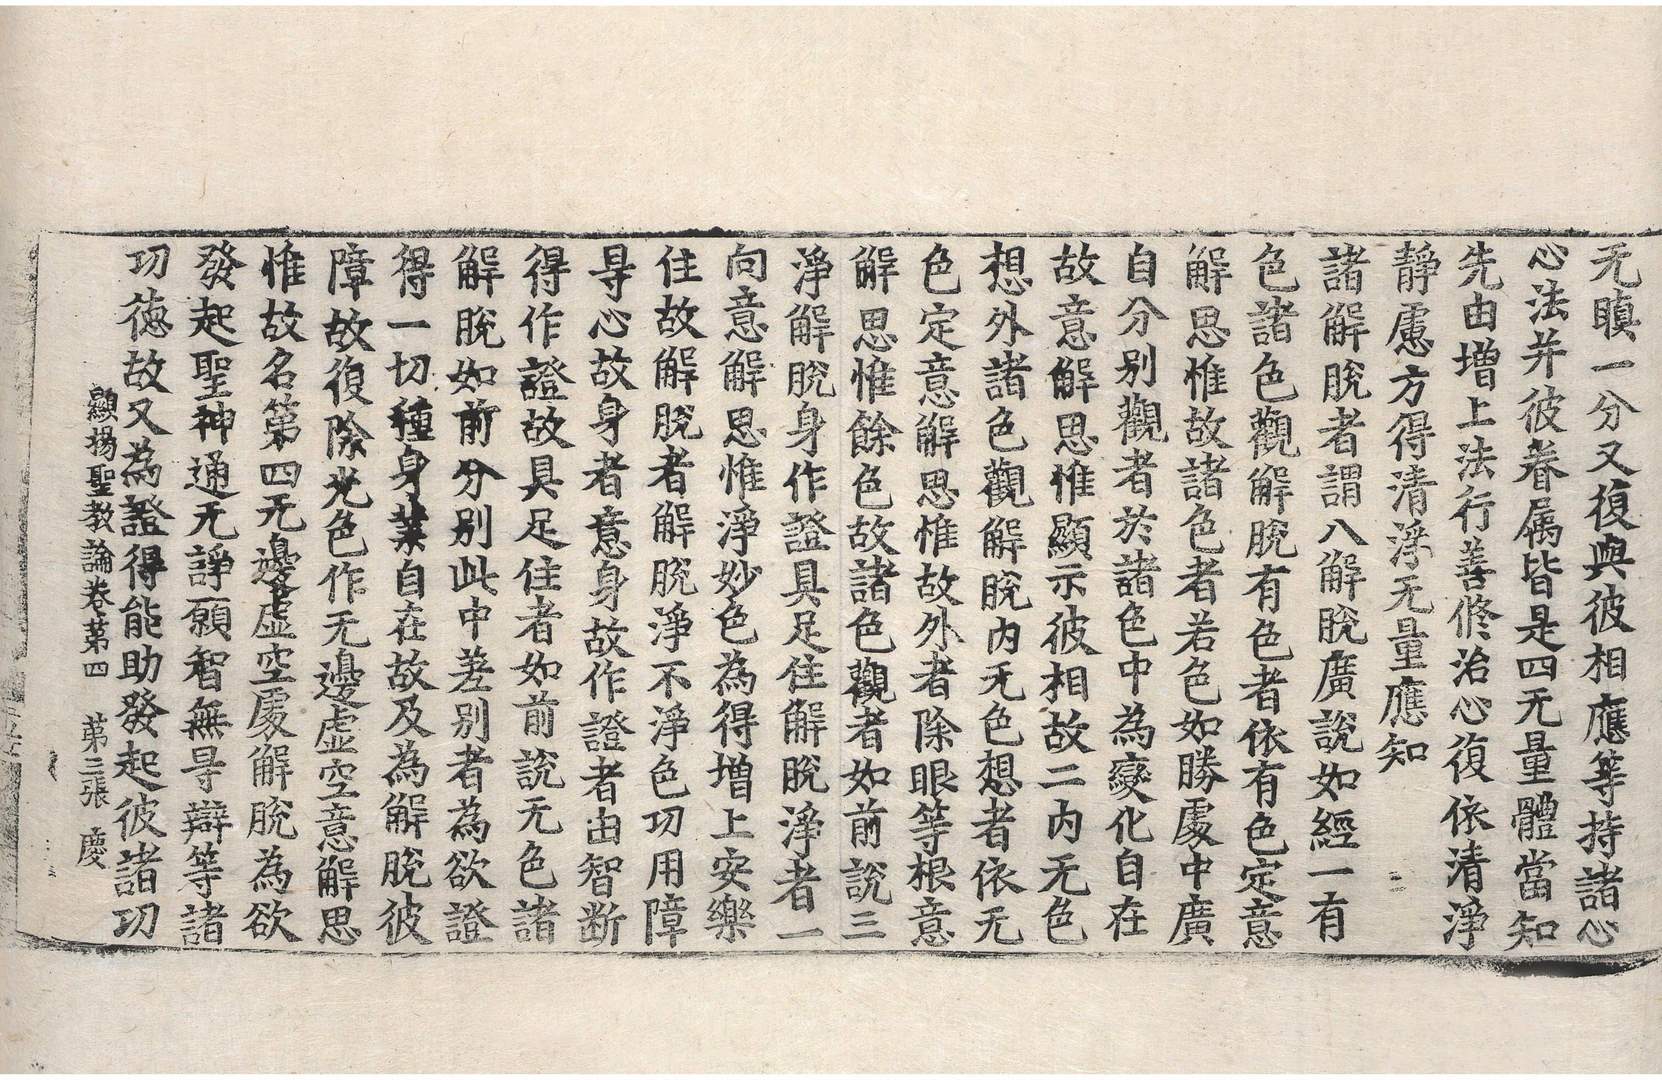 无瞋一分又復與彼相應等持諸心
心法并彼眷属皆是四无量體當知
先由增上法行善修治心復依清淨
靜慮方得清淨无量應知
諸解脫者謂八解脫廣說如經一有
色諸色觀解脫有色者依有色定意
解思惟故諸色者若色如勝處中廣
自分别觀者於諸色中為變化自在
故意解思惟顯示彼相故二内无色
想外諸色觀解脫内无色想者依无
色定意解思惟故外者除眼等根意
解思惟餘色故諸色觀者如前說三
淨解脫身作證具足住解脫淨者一
向意解思惟淨妙色為得增上安樂
住故解脫者解脫淨不淨色功用障
㝵心故身者意身故作證者由智断
得作證故具足住者如前說无色諸
解脫如前分别此中差别者為欲證
得一切種身業自在故及為解脫彼
障故復除光色作无邊虛空意解思
惟故名第四无邊虛空處解脫為欲
發起聖神通无諍願智無㝵辯等諸
功德故又為證得能助發起彼諸功
顯揚聖教論卷苐四　苐三張　慶